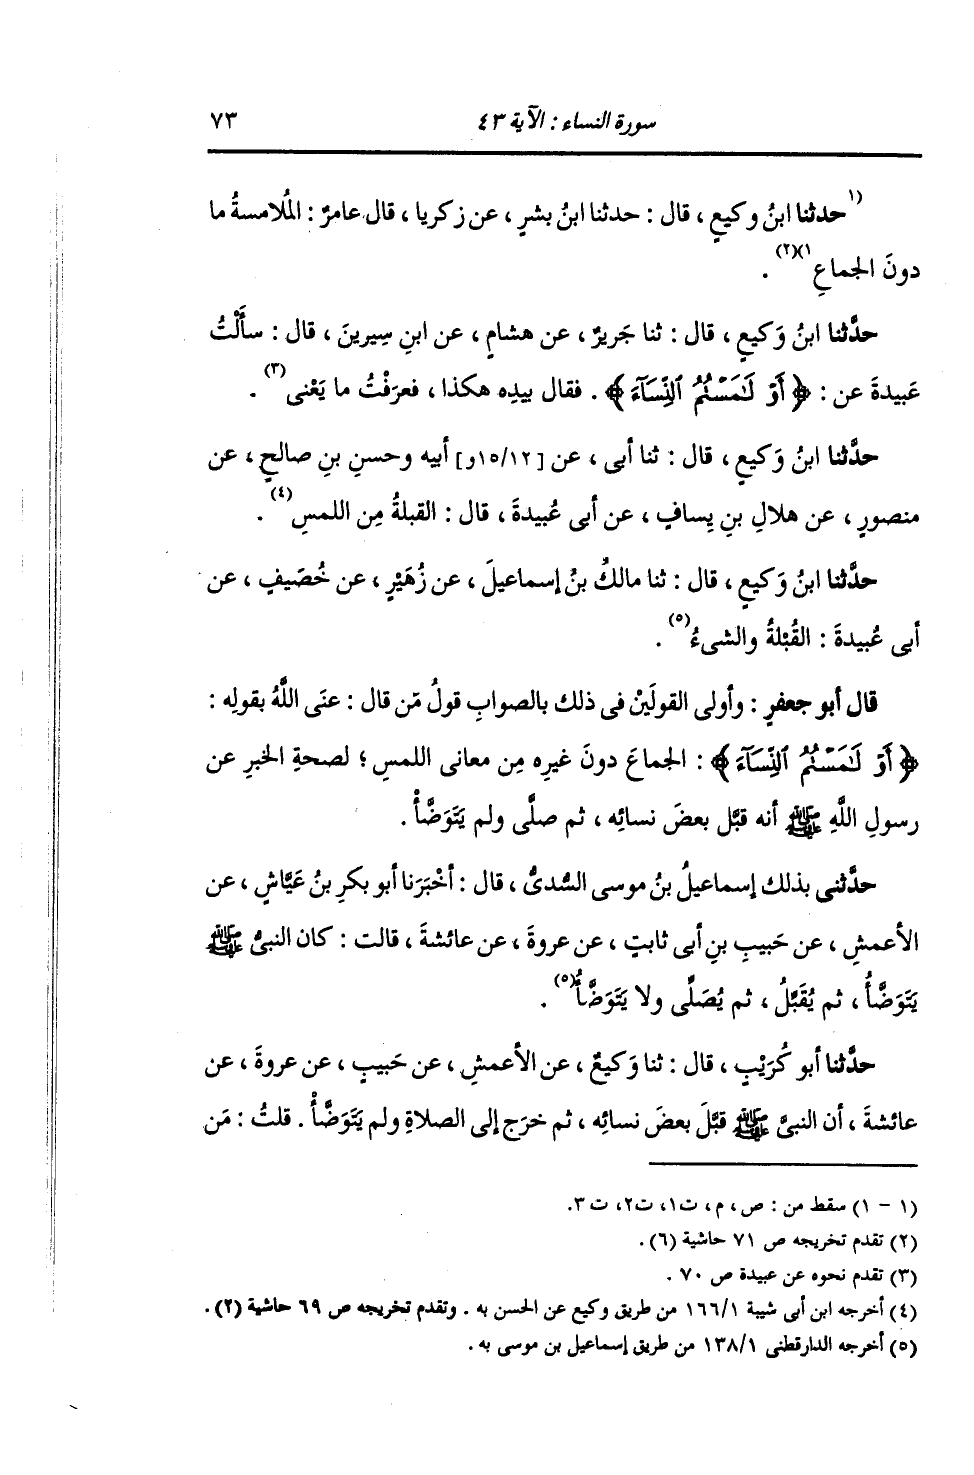 سورة النساء : الآية ٤٣
٧٣
(١حدثنا ابنُ وكيعٍ ، قال : حدثنا ابنُ بشرٍ ، عن زكريا ، قال عامرٌ : المُلامسةُ ما
دونَ الجماعِ١)(٢) .
حدَّثنا ابنُ وَكيعٍ ، قال : ثنا جَريرٌ ، عن هشامٍ ، عن ابنِ سِيرينَ ، قال : سأَلْتُ
عَبيدةَ عن : ﴿ أَوْ لَٰمَسْتُمُ ٱلنِّسَآءَ ﴾ . فقال بيدِه هكذا ، فعرَفْتُ ما يَعْنى(٣) .
حدَّثنا ابنُ وَكيعٍ ، قال : ثنا أبى ، عن [١٥/١٢و] أبيه وحسنِ بنِ صالحٍ ، عن
منصورٍ ، عن هلالِ بنِ يِسافٍ ، عن أبى عُبيدةَ ، قال : القبلةُ مِن اللمسِ(٤) .
حدَّثنا ابنُ وَكيعٍ ، قال : ثنا مالكُ بنُ إسماعيلَ ، عن زُهَيْرٍ ، عن خُصَيفٍ ، عن
أبى عُبيدةَ : القُبْلةُ والشىءُ(٥) .
قال أبو جعفرٍ : وأولى القولَيْن فى ذلك بالصوابِ قولُ مَن قال : عنَى اللَّهُ بقولِه :
﴿ أَوْ لَٰمَسْتُمُ ٱلنِّسَآءَ ﴾ : الجماعَ دونَ غيرِه مِن معانى اللمسِ ؛ لصحةِ الخبرِ عن
رسولِ اللَّهِ ﷺ أنه قبَّل بعضَ نسائِه ، ثم صلَّى ولم يَتَوَضَّأْ .
حدَّثنى بذلك إسماعيلُ بنُ موسى السُّدىُّ ، قال : أخْبَرَنا أبو بكرِ بنُ عَيَّاشٍ ، عن
الأعمشِ ، عن حَبيبِ بنِ أبى ثابتٍ ، عن عروةَ ، عن عائشةَ ، قالت : كان النبىُّ ﷺ
يَتَوَضَّأُ ، ثم يُقَبِّلُ ، ثم يُصَلِّى ولا يَتَوَضَّأُ(٥) .
حدَّثنا أبو كُرَيْبٍ ، قال : ثنا وَكيعٌ ، عن الأعمشِ ، عن حَبيبٍ ، عن عروةَ ، عن
عائشةَ ، أن النبىَّ ﷺ قبَّلَ بعضَ نسائِه ، ثم خرَج إلى الصلاةِ ولم يَتَوَضَّأْ . قلتُ : مَن
(١ - ١) سقط من : ص ، م ، ت١، ت٢، ت ٣.
(٢) تقدم تخريجه ص ٧١ حاشية (٦) .
(٣) تقدم نحوه عن عبيدة ص ٧٠ .
(٤) أخرجه ابن أبى شيبة ١٦٦/١ من طريق وكيع عن الحسن به . وتقدم تخريجه ص ٦٩ حاشية (٢) .
(٥) أخرجه الدارقطنى ١٣٨/١ من طريق إسماعيل بن موسى به .